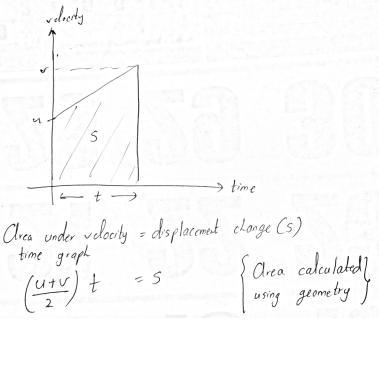 velocity
v
u
S
t
time
Area under velocity = displacement change (s)
time graph
(u+v/2) t = s
{Area calculated
using geometry}